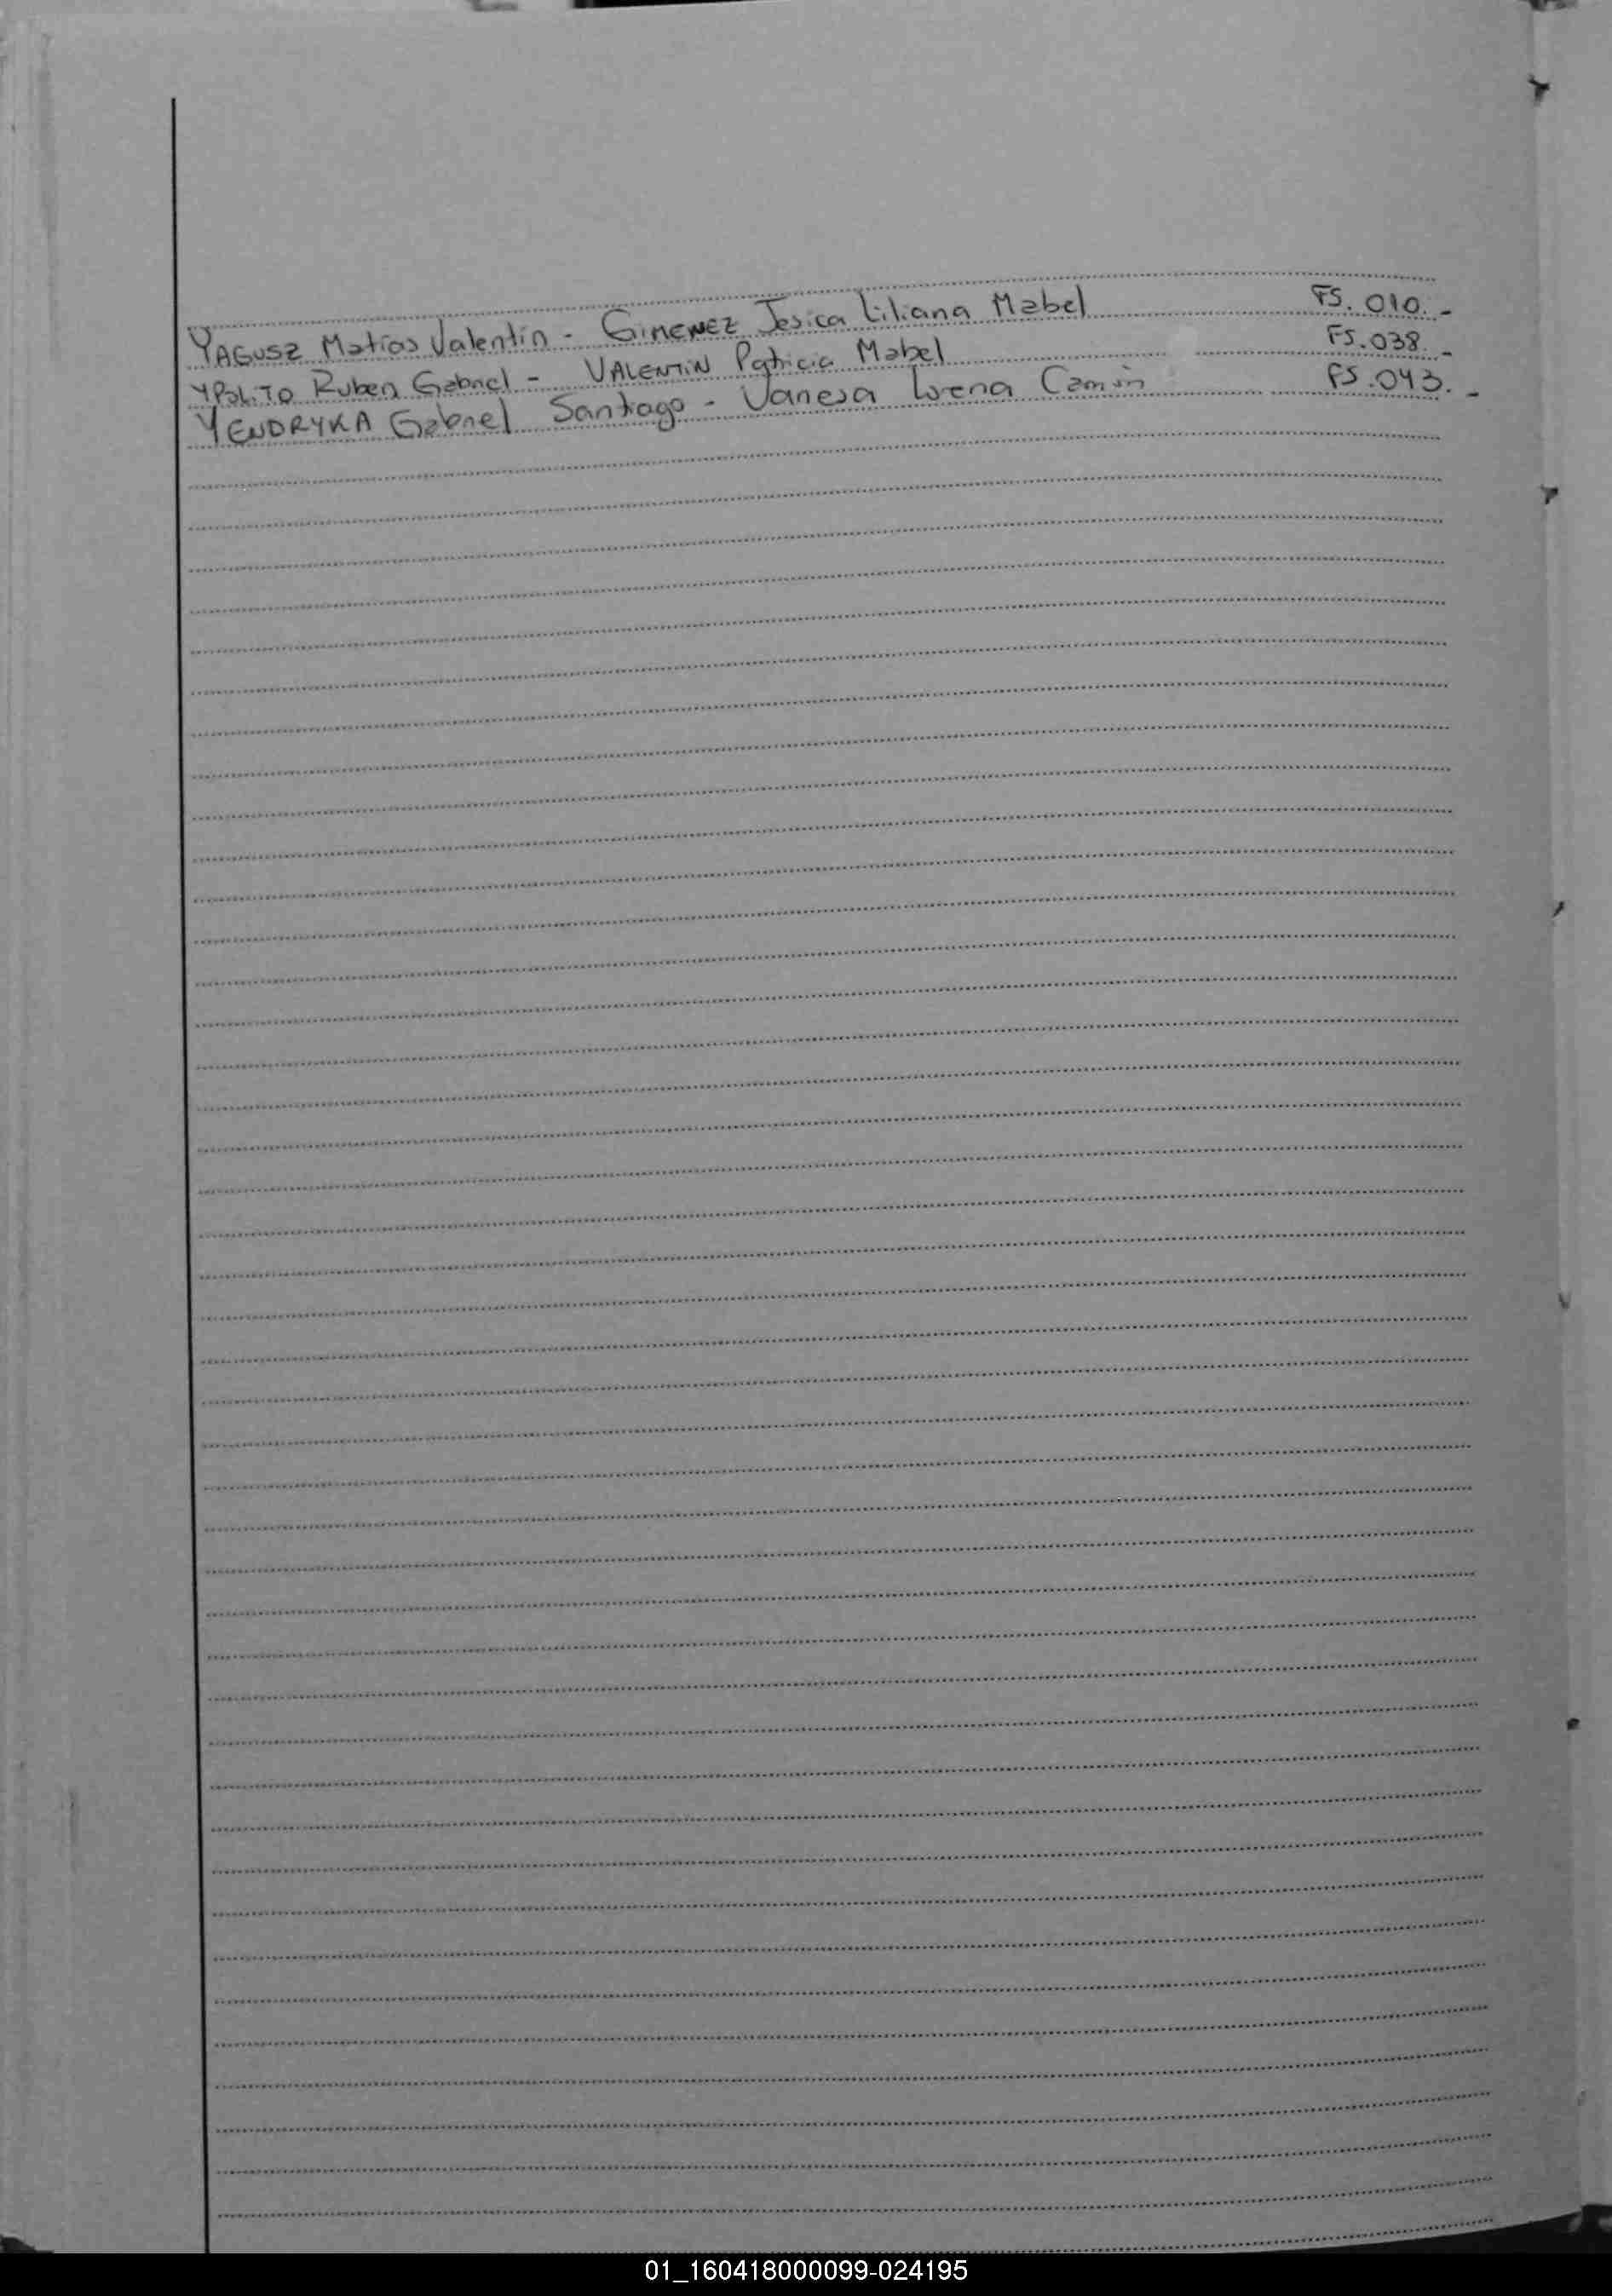 YAGUSZ Matías Valentín - GIMENEZ Jesica Liliana Mabel FS. 010.-
YPOLITO Ruben Gabriel - VALENTIN Patricia Mabel FS. 038.-
YENDRYKA Gabriel Santiago - Vanesa Lorena FS. 043.-
01_160418000099-024195